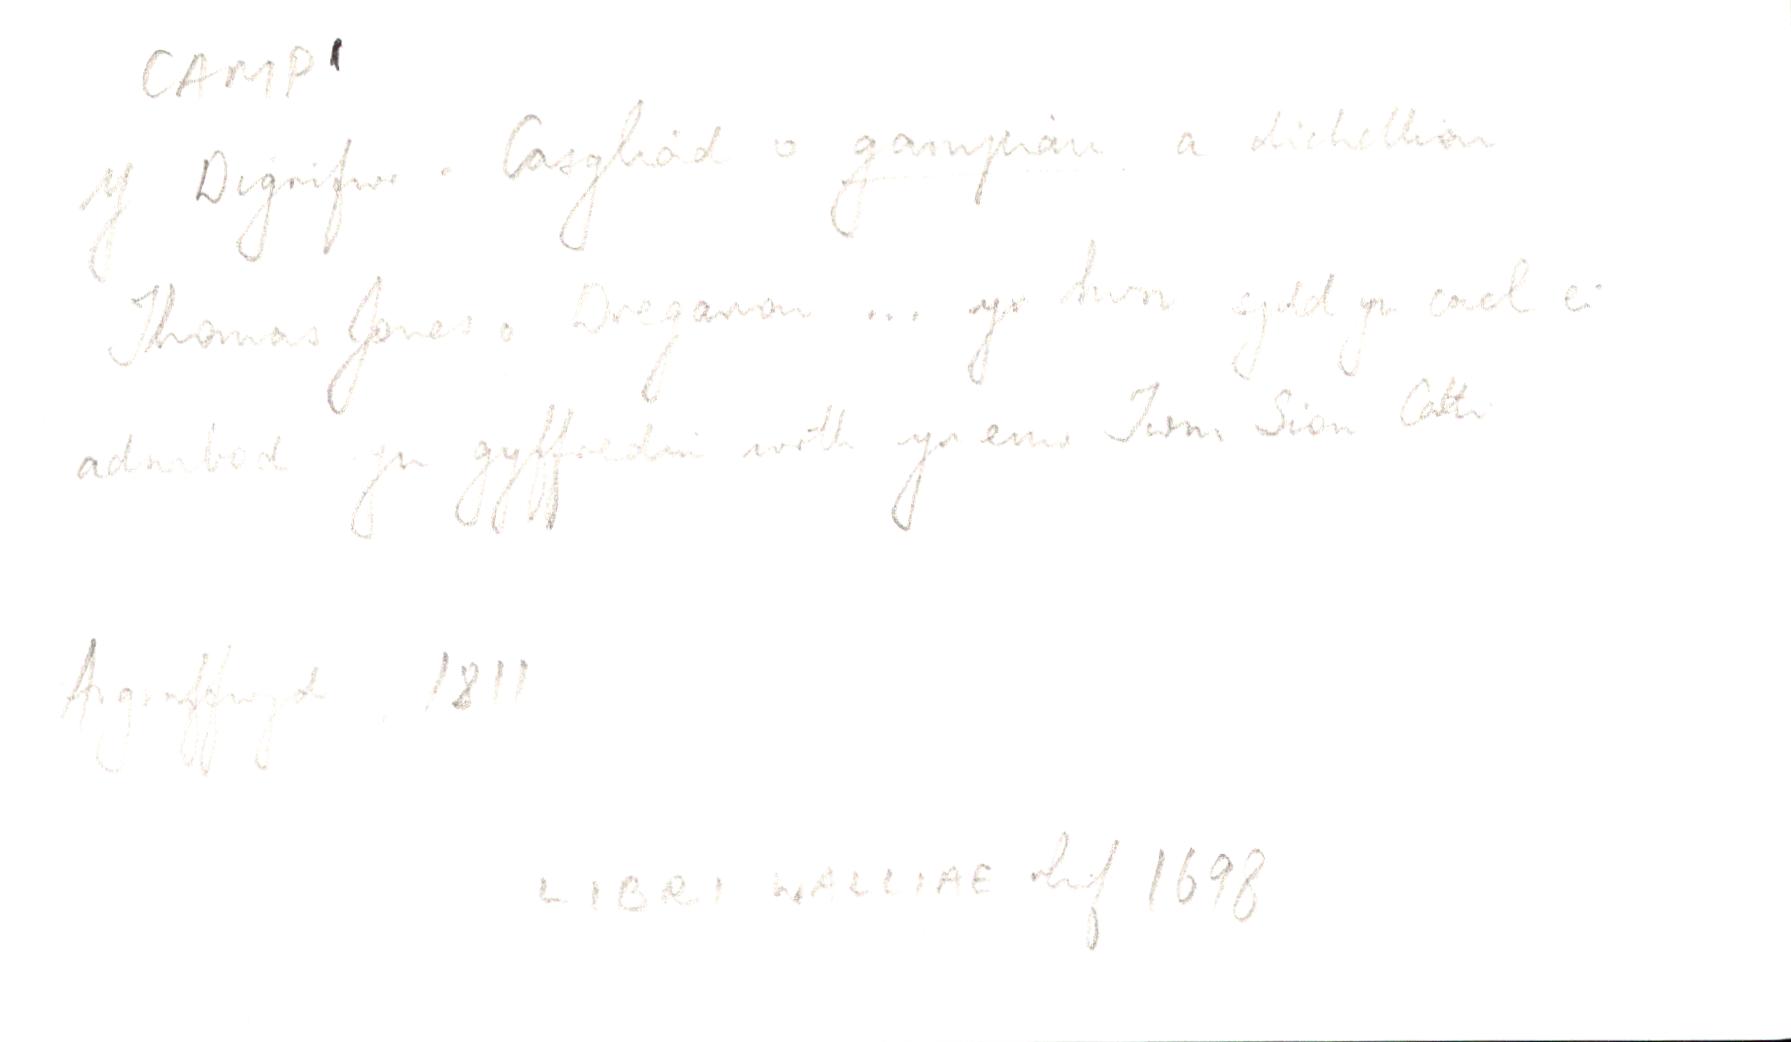 CAMP¹
Y Digrifwr. Casgliad o gampiau a dichellion
Thomas Jones o Dregaron ... yr hwn sydd yn cael ei
adnabod yn gyffredin wrth yr enw Twm Sion Catti
Argraffwyd, 1811
LIBRI WALLIAE rhif 1698